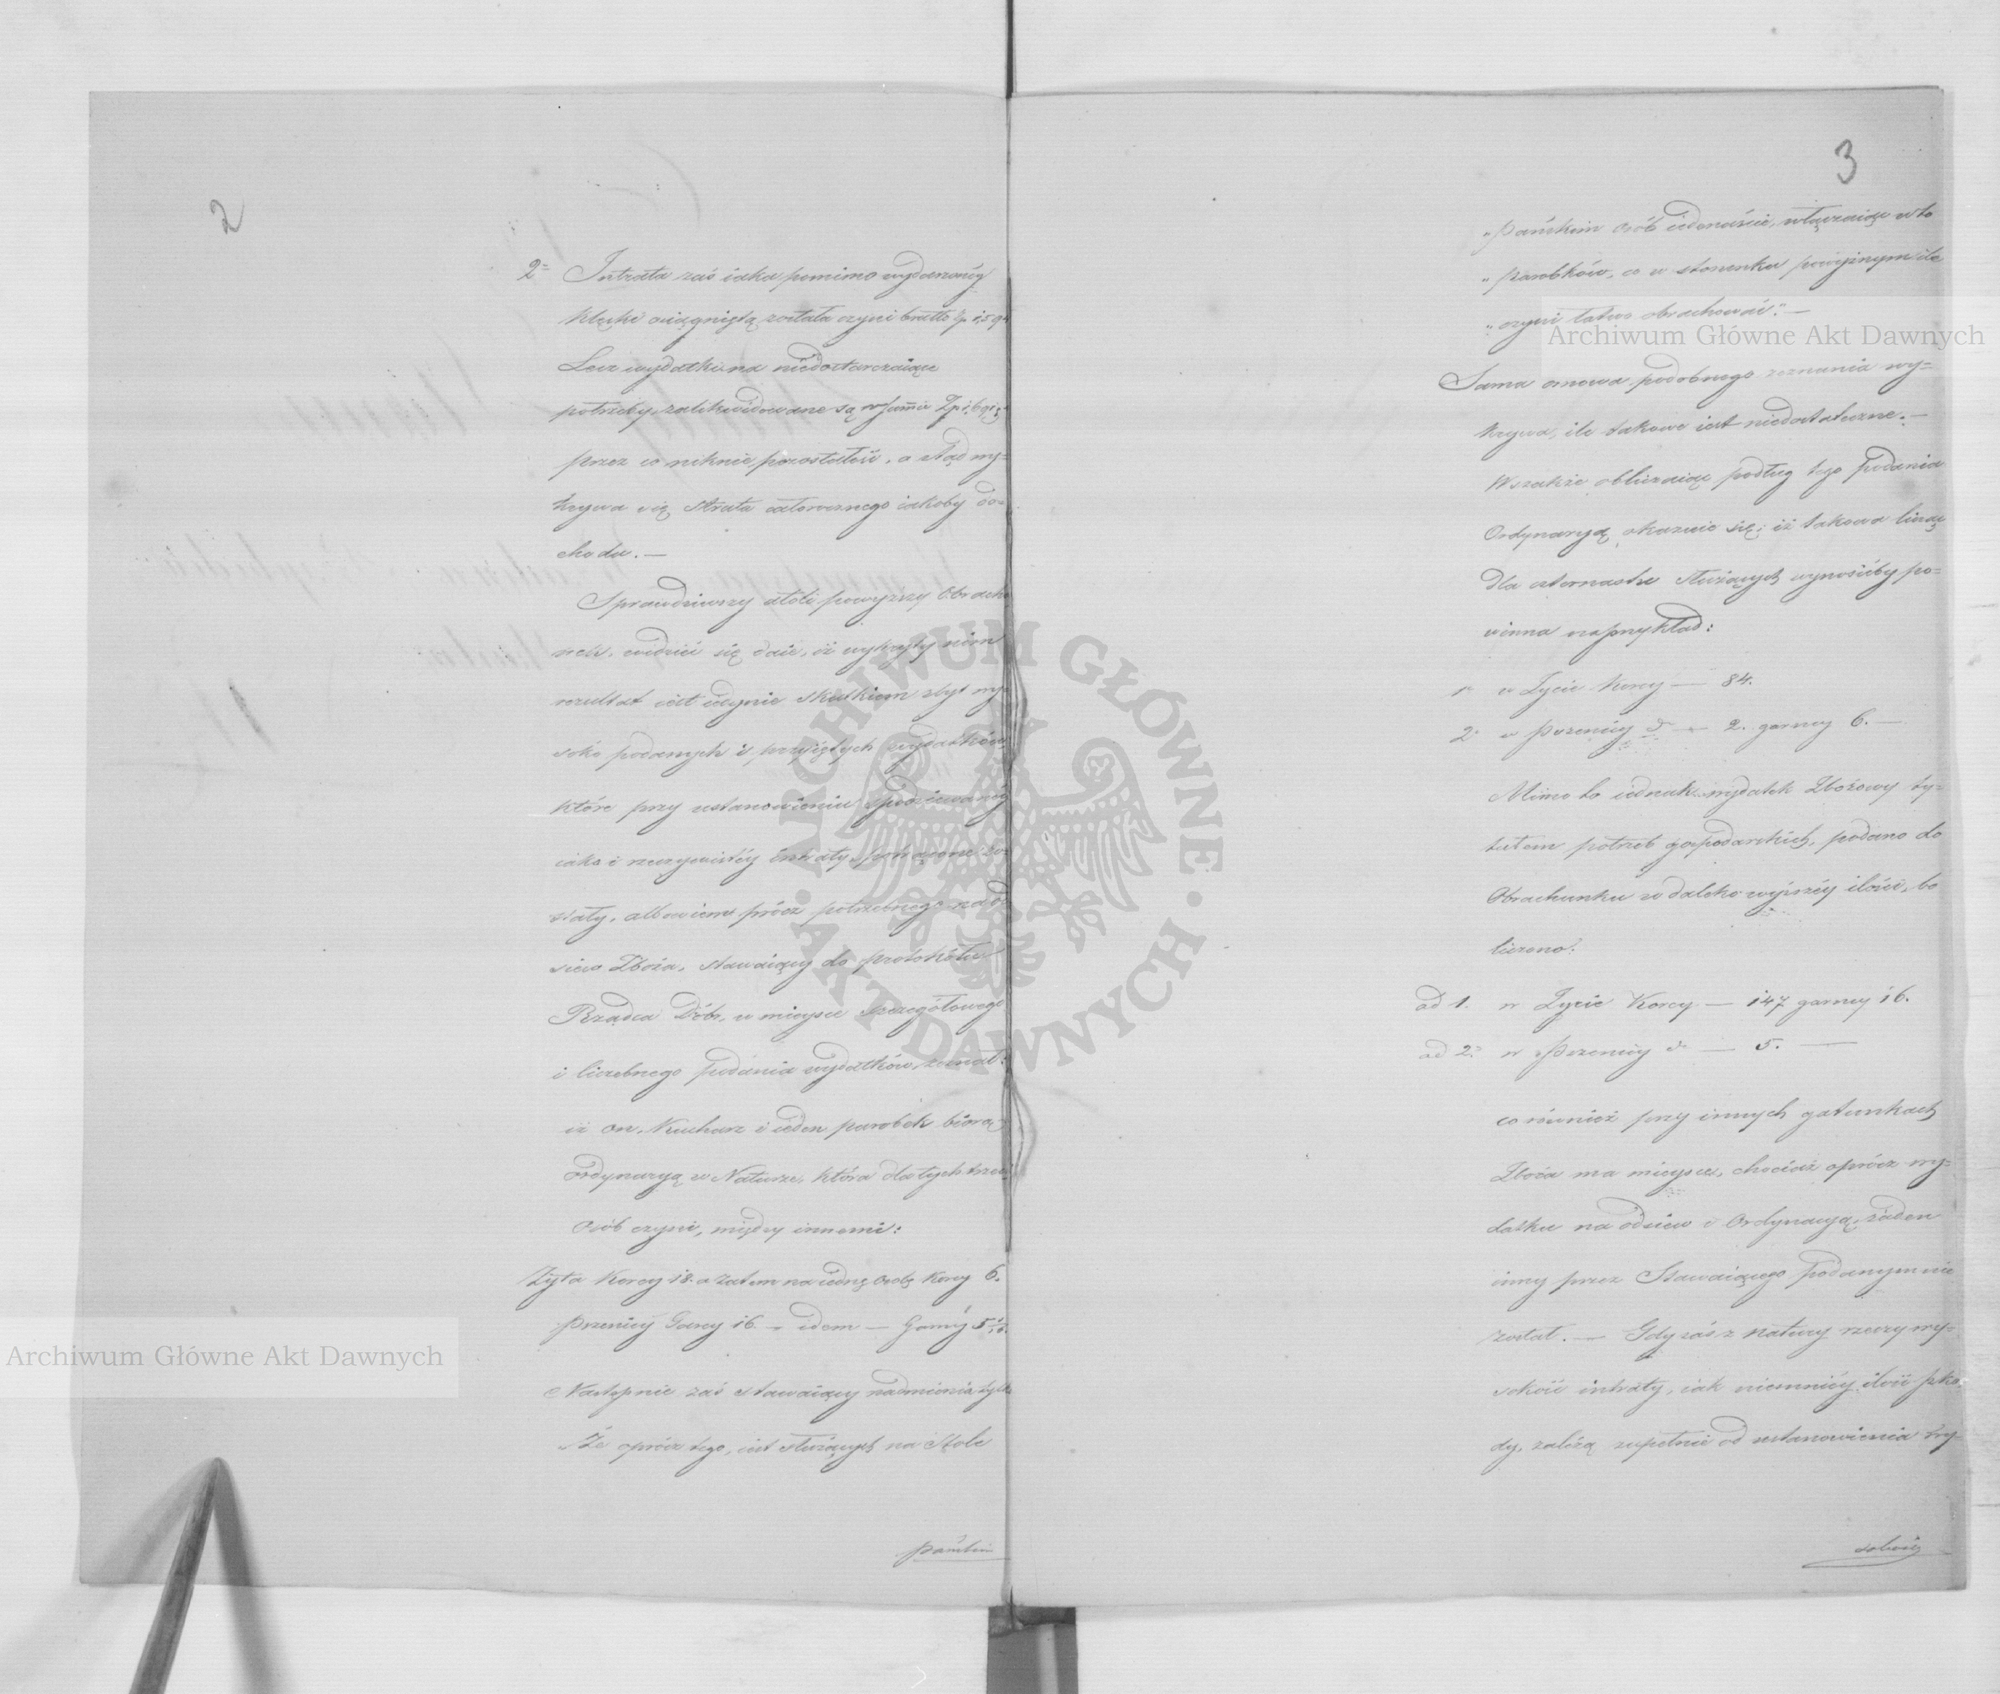 2
2° Intrata zaś iaka pomimo wydarzonéy
klęski osiągniętą została czyni brutto Zp. 1,594
Lecz wydatki na niedostarczaiące
potrzeby zalikwidowane są w Summie Zp. 1,691
przez co niknie pozostałość, a stąd wy=
krywa się strata całorocznego iakoby do=
chodu. —
Sprawdziwszy atoli powyższy Obrach
nek, widzieć się daie, iż wykryty nim
rezultat iest iedynie skutkiem zbyt wy
soko podanych i przyiętych wydatków,
które przy ustanowieniu spodziewanéy
iako i rzeczywistéy intraty, potrącone zo=
stały, albowiem prócz potrzebnego na od
siew Zboża, stawaiący do protokółu
Rządca Dóbr, w mieysce szczegółowego
i liczebnego podania wydatków, zeznał:
iż on, Kucharz i ieden parobek biorą
ordynaryą w Naturze, która dla tych trzech
Osób czyni, między innemi:
Żyta Korcy 18. a zatem na iednę Osobę Korcy 6.
Pszenicy Garcy 16 — idem — Garncy 5
Następnie zaś stawaiący nadmienia tylko
Że oprócz tego, iest służących na Stole
Pańskim
Archiwum Główne Akt Dawnych
3
„Pańskim osób iedenaście, włączaiąc w to
„Parobków, co w stosunku powyższym ile
„czyni łatwo obrachować." —
Sama osnowa podobnego zeznania wy=
krywa, ile takowe iest niedostateczne. —
Wszakże obliczaiąc podług tego podania
Ordynaryą, okazuie się; iż takowa licząc
dla czternastu służących wynosićby po=
winna naprzykład:
1° w Życie Korcy — 84.
2° w Pszenicy d° — 2. garncy 6. —
Mimo to iednak wydatek Zbożowy ty=
tułem potrzeb gospodarskich, podano do
Obrachunku w daleko wyższéy ilości, bo
liczono:
ad 1. w Życie Korcy — 147 garncy 16.
ad 2. w Pszenicy d° — 5. —
co również przy innych gatunkach
Zboża ma mieysce, chociaż oprócz wy=
datku na odsiew i Ordynaryą, żaden
inny przez Stawaiącego podanym nie
został. — Gdy zaś z natury rzeczy wy=
sokość intraty, iak niemniéy ilość szko
dy, zależą zupełnie od ustanowienia
Archiwum Główne Akt Dawnych
ARCHIWUM GŁÓWNE
AKT DAWNYCH